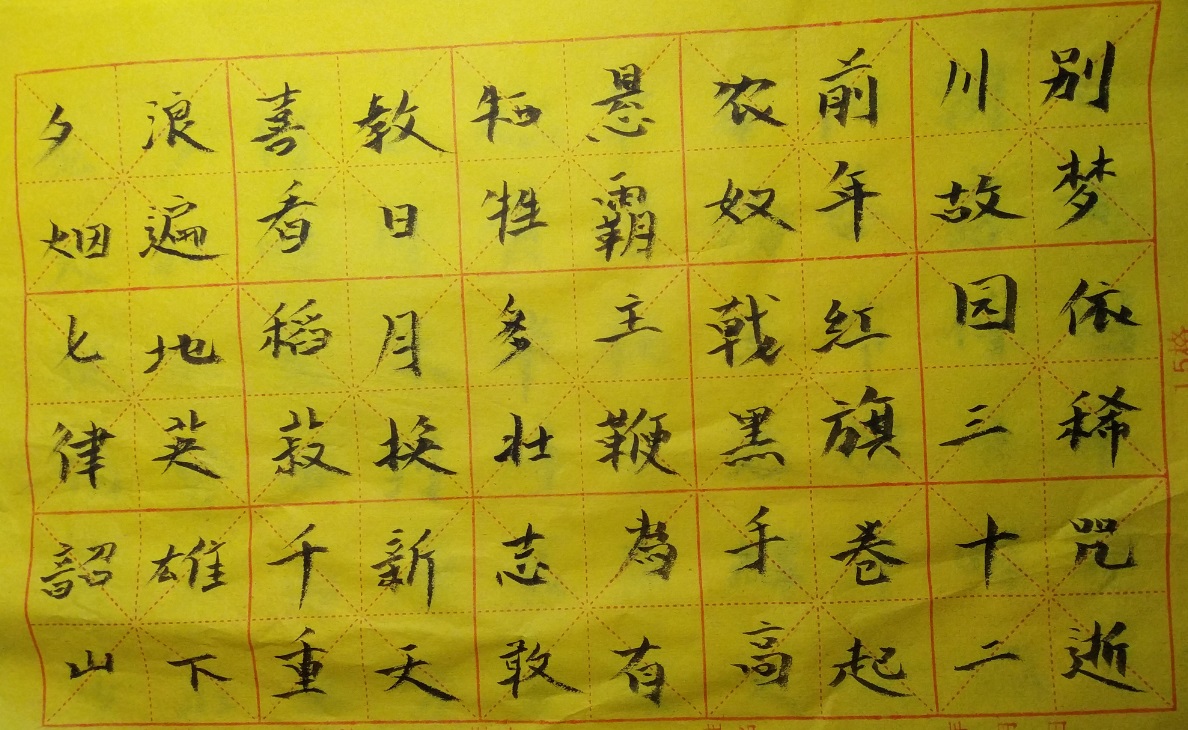 别梦依稀咒逝
川故园三十二
前年红旗卷起
农奴戟黑手高
悬霸主鞭為有
牺牲多壮志敢
教日月换新天
喜看稻菽千重
浪遍地英雄下
夕烟七律韶山
15格